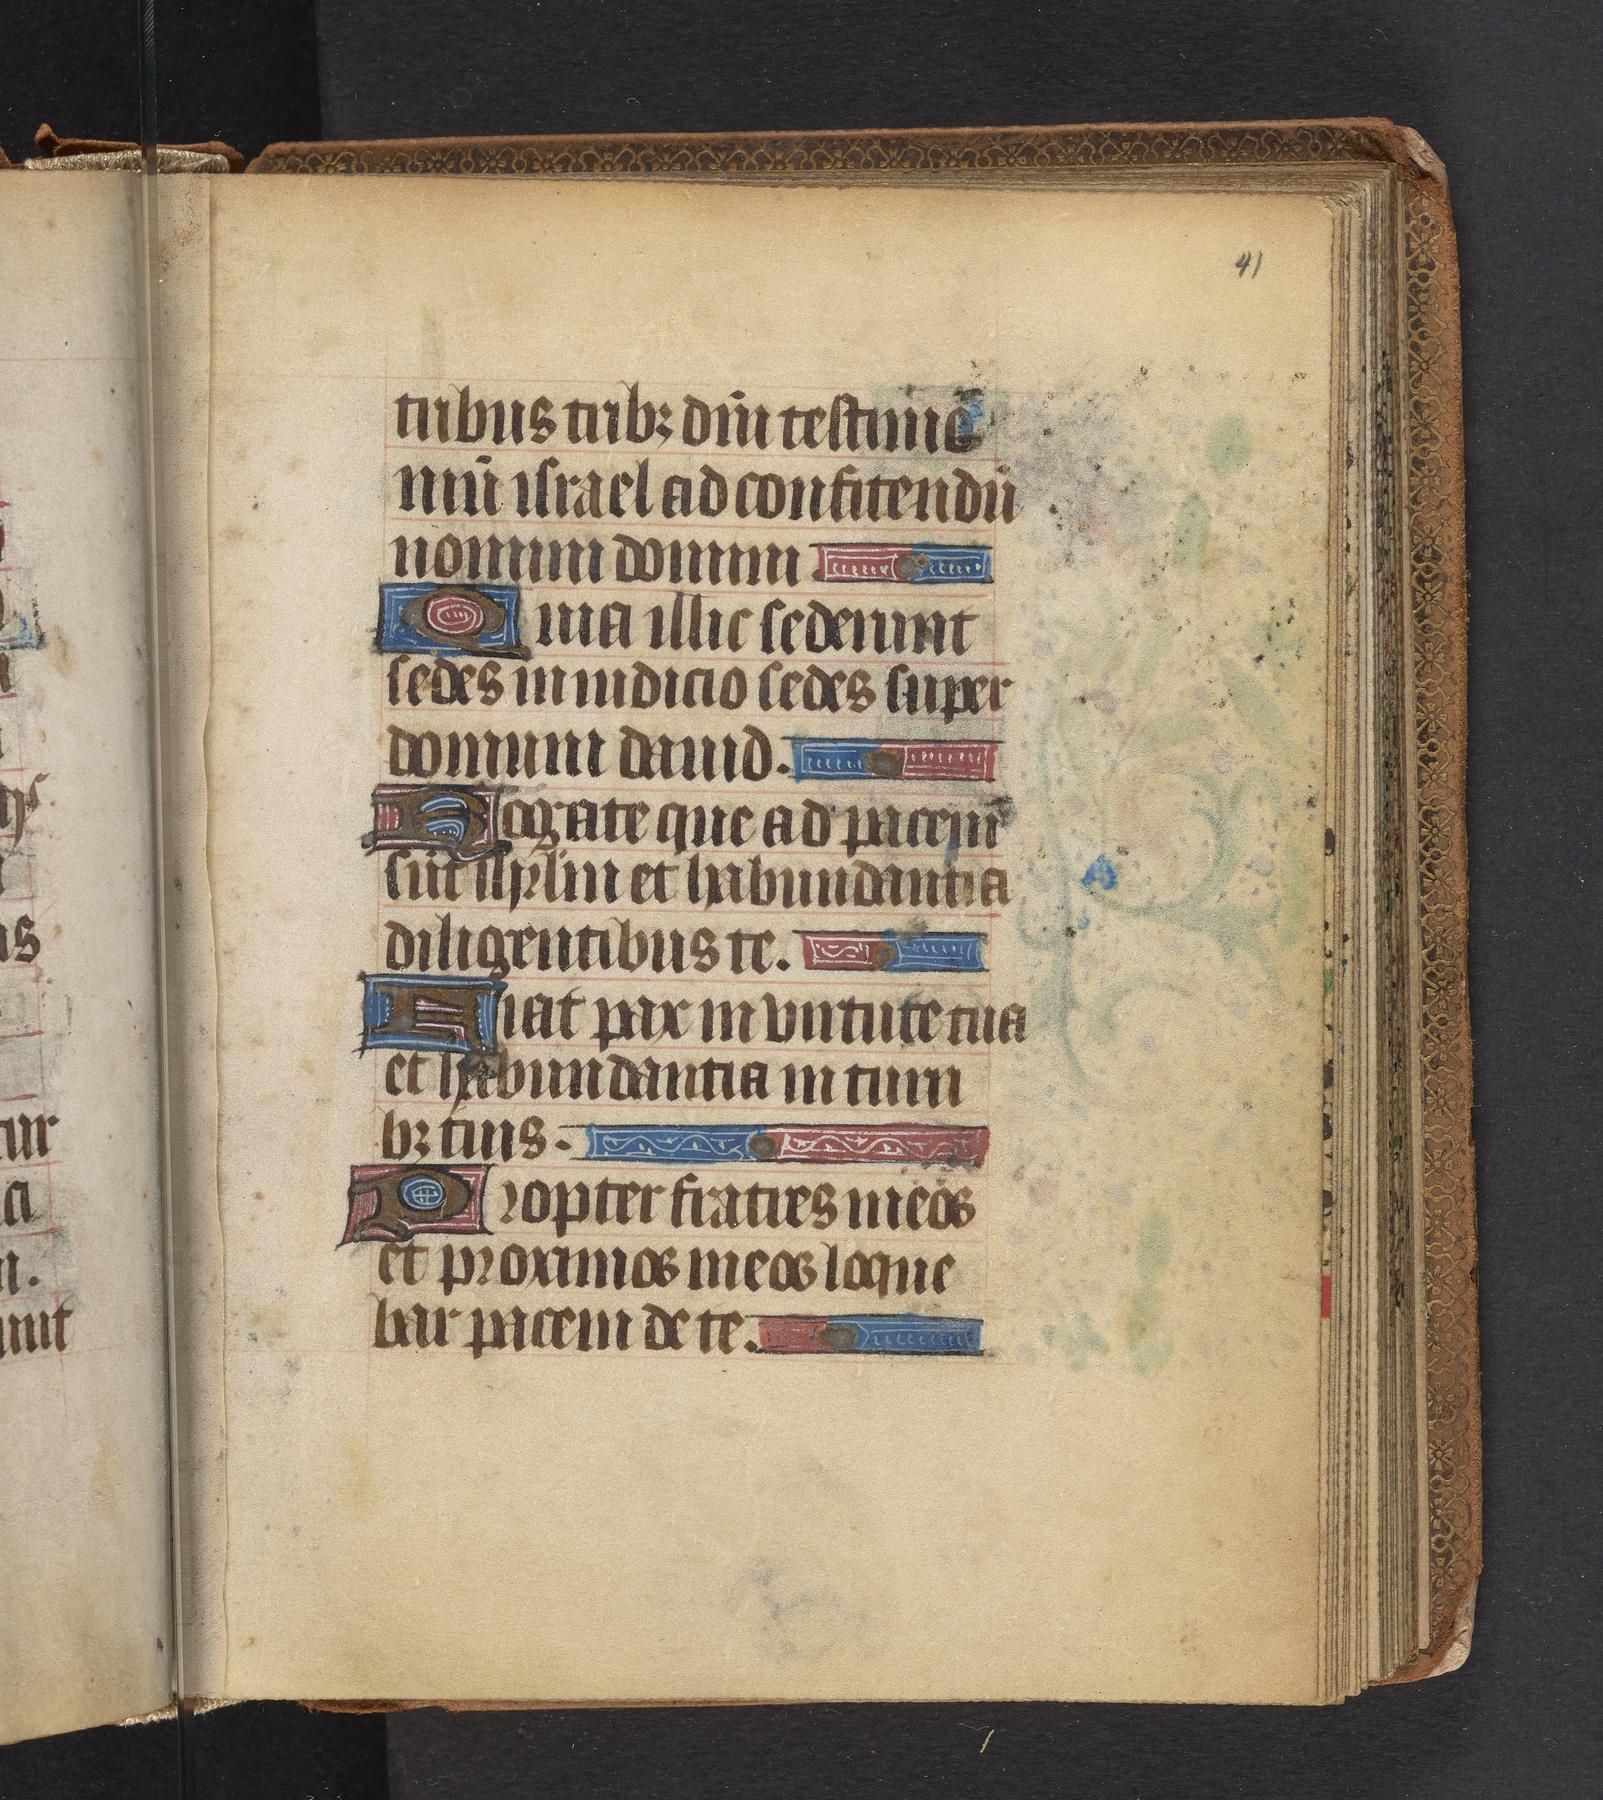 41
tribus tribꝫ dn̄i testimo
niū israel ad confitendū
nomini domini
Quia illic sederunt
sedes in iudicio sedes super
domum dauid.
Rogate que ad pacem
sūt ihrlm et habundantia
diligentibus te.
Fiat pax in virtute tua
et habundantia in turri
bꝫ tuis.
Propter fratres meos
et proximos meos loque
bar pacem de te.